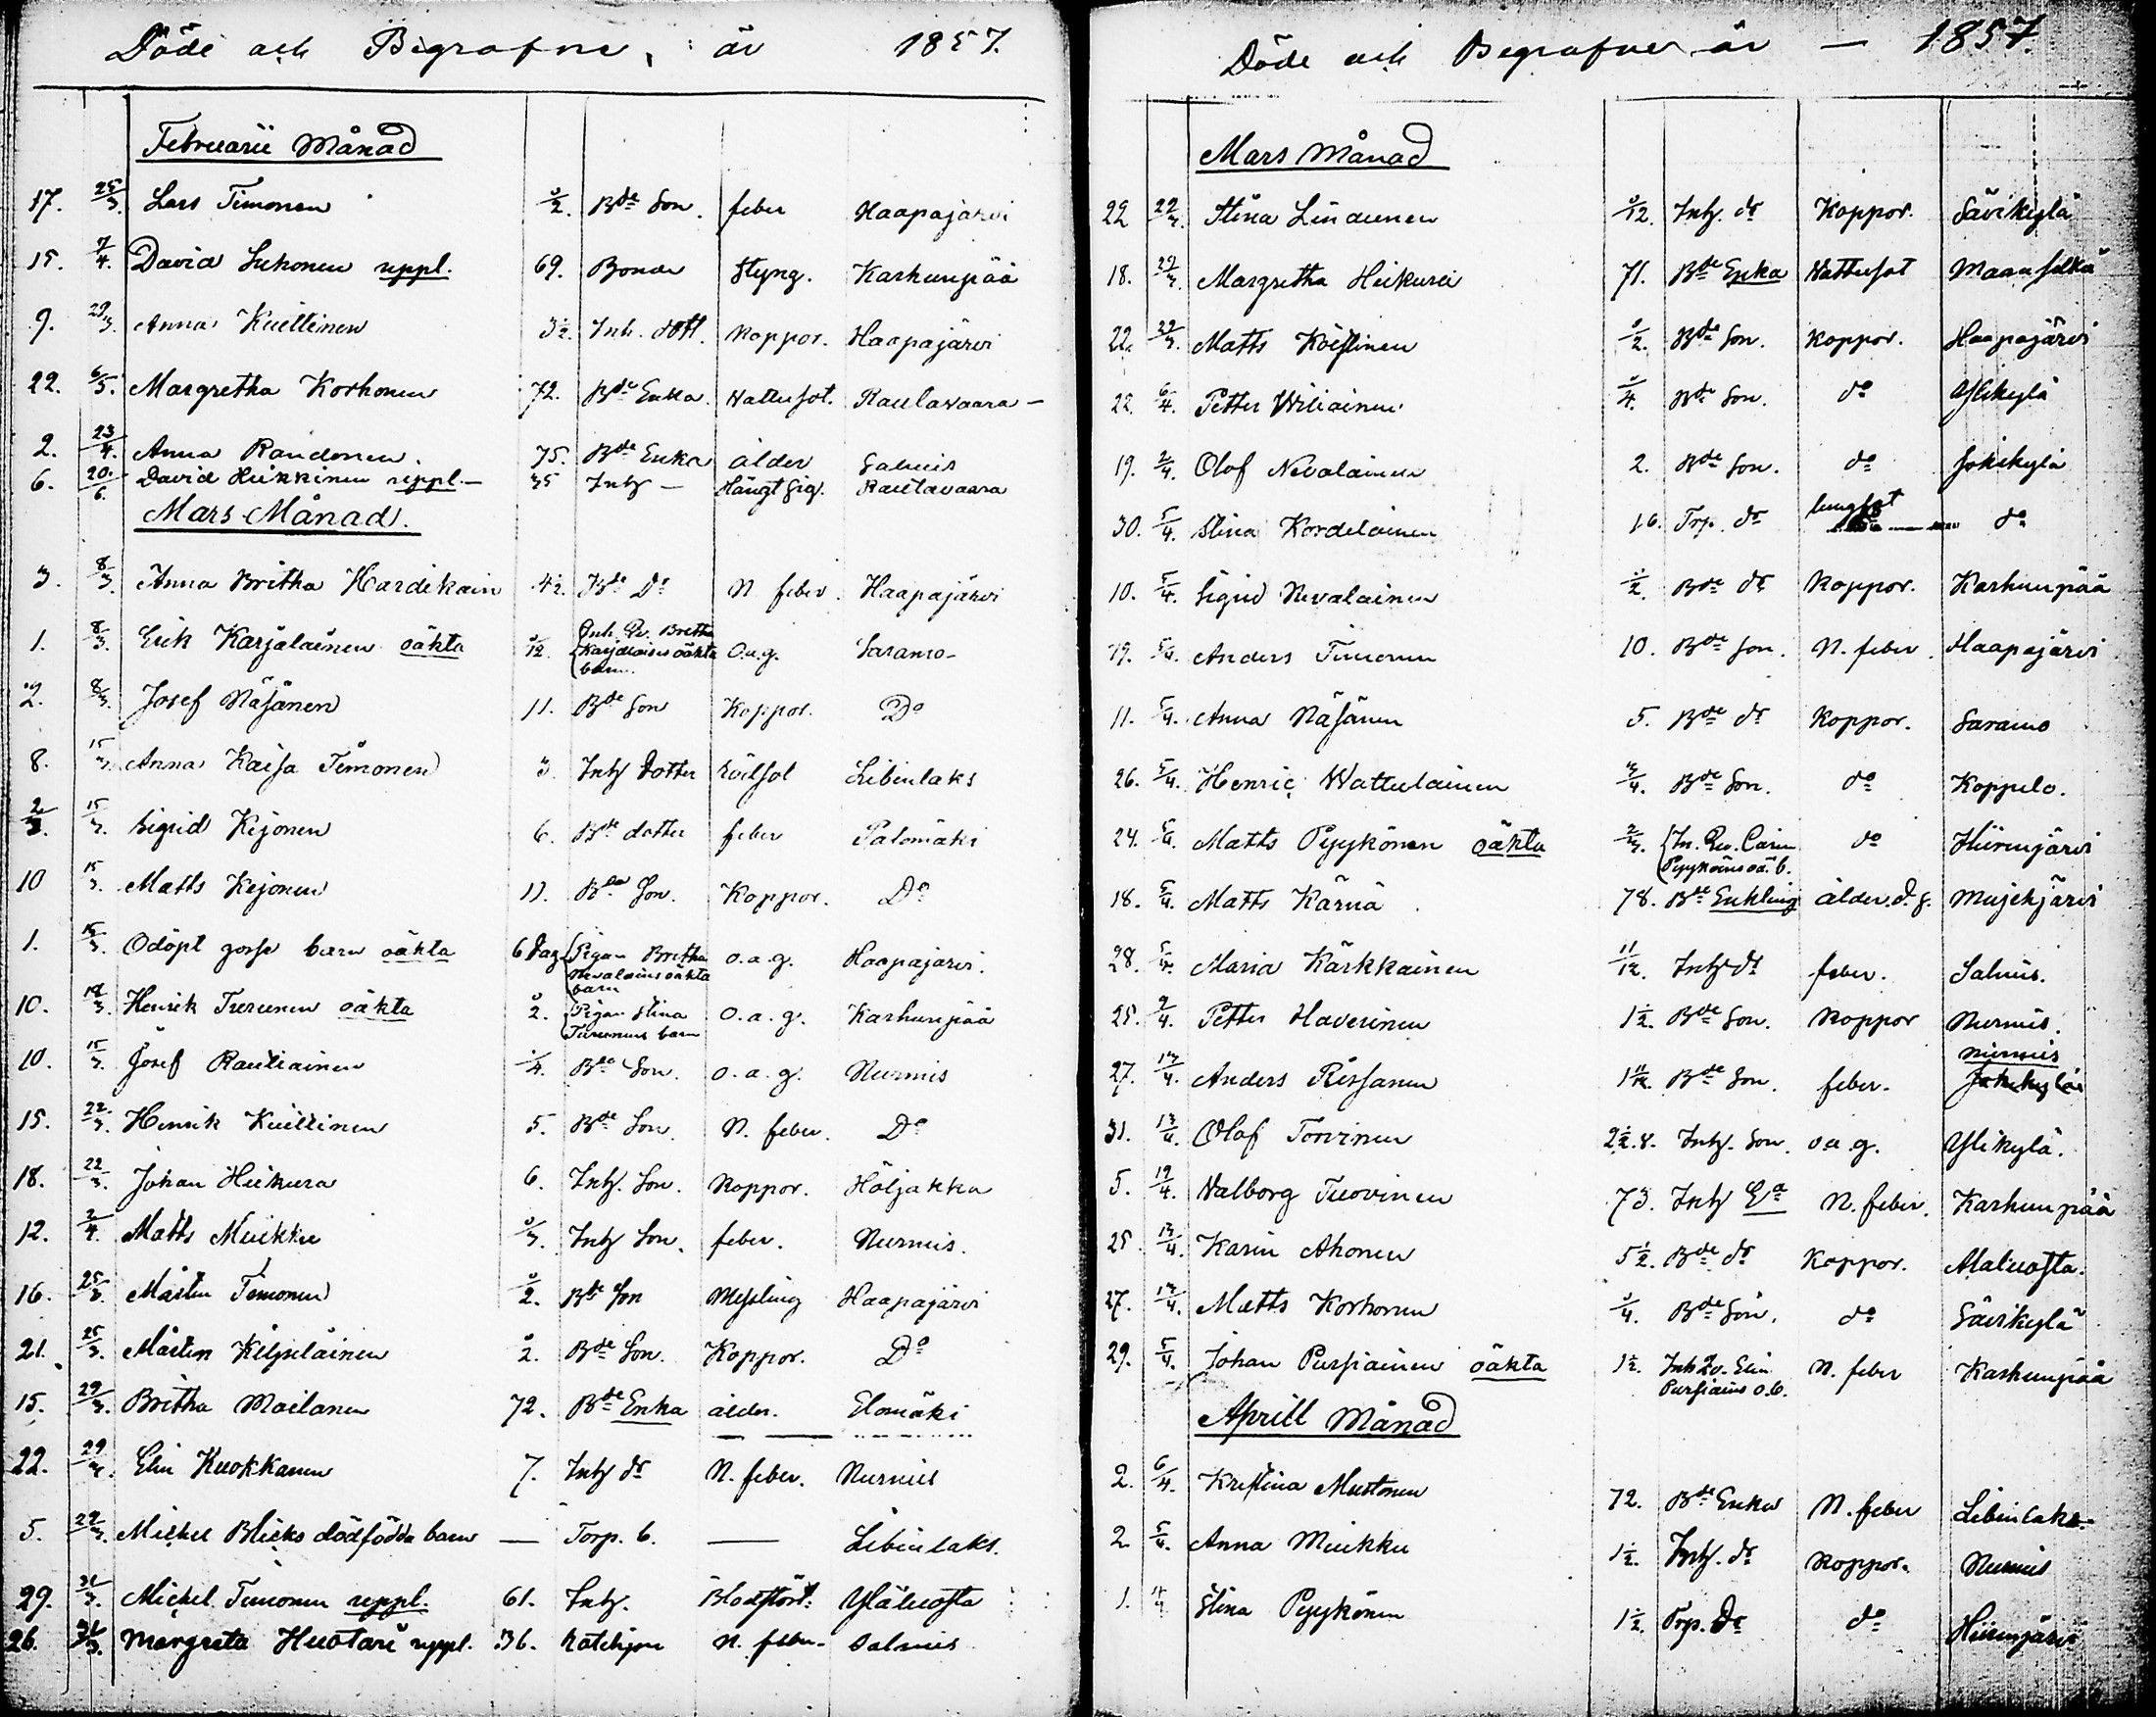 Döde och Begrafne, år 1857.
Februarii Månad
17. 25/3. Lars Timonen 1/2. Bde Son. feber Haapajärvi
15. 7/4. David Suhonen uppl. 69. Bonde Styng. Karhunpää
9. 29/3. Anna Kuittinen 3 1/2. Inh. dott. Koppor. Haapajärvi
22. 6/5. Margretha Korhonen 72. Bde Enka Vattusot. Rautavaara
2. 23/4. Anna Raudonen 75. Bde Enka ålder Salmis
6. 20/6. David Heikkinen uppl. 35 Inh Hängt sig. Rautavaara
Mars Månad.
3. 8/3. Anna Britha Hardikain 4 1/2. Bde Do N. feber. Haapajärvi
1. 8/3. Erik Karjalainen oäkta 1/12. Inh. Qv. Britha Karjalains oäkta barn. o.a.g. Saramo
2. 8/3. Josef Näsänen 11. Bde Son Koppor. Do
8. 15/3. Anna Kaisa Timonen 3. Inh Dotter Libeulaks
15/3. Sigrid Kejonen 6. Bde dotter feber Palomäki
10 15/3. Matts Kejonen 11. Bde Son. Koppor. Do
1. 15/3. Odöpt gosse barn oäkta 6 Dag Pigan Britha Nevalains oäkta barn o.a.g. Haapajärvi.
10. Henrik Turunen oäkta 2. Pigan Stina Turunens barn o.a.g. Karhunpää
10. 15/3. Josef Rautiainen 1/4. Bde Son. o.a.g. Nurmis
15. 22/3. Henrik Kuittinen 5. Bde Son. N. feber. Do
18. 22/3. Johan Heikura 6. Inh. Son. Koppor. Höljäkkä
12. 2/4. Matts Muikku Inh Son. feber. Nurmis.
16. 25/3. Mårten Timonen 1/2. Bde Son Messling Haapajärvi
21. 25/3. Mårten Kilpeläinen 2. Bde Son. Koppor. Do
15. 29/3. Britha Moilanen 72. Bde Enka ålder. Elomäki
22. 29/3. Elin Kuokkanen 7. Inh dr N. feber. Nurmis
5. 29/3. Michel Blicks dödfödda barn — Torp. b. — Libeulaks.
29. 31/3. Michel Timonen uppl. 61. Inh. Blodstört. Yläluosta
26. 31/3. Margreta Huotari uppl. 36. N. feber. Salmis
Döde och Begrafne år — 1857.
Mars Månad
22 22/3. Stina Linaunen Inh. dr Koppor. Sävikylä
18. 29/3. Margretha Heikura 71. Bde Enka Vattusot Maanselkä
22. 29/3. Matts Köistinen 1/2. Bde Son. Koppor. Haapajärvi
22. 6/4. Petter Wiliainen Bde Son. do Ylikylä
19. 2/4. Olof Nevalainen 2. Bde Son. do Jokikylä
30. 5/4. Stina Kordelainen 16. Trp. dr lungsot do
10. 5/4. Sigrid Nevalainen 1/2. Bde dr Koppor. Karhunpää
19. 5/4. Anders Timonen 10. Bde Son. N. feber. Haapajärvi
11. 5/4. Anna Näsänen 5. Bde dr Koppor. Saramo
26. 5/4. Henric Wattulainen 3/4. Bde Son. do Koppelo.
24. 5/4. Matts Pyykönen oäkta 2/3. In. Qv. Carin Pyyköins oä. b. do Hiirenjärvi
18. 5/4. Matts Kärnä 78. Bde Enkling ålder. d. g. Mujejärvi
28. 5/4. Maria Kärkkainen 11/12. Inh dr feber. Salmis.
25. 2/4. Petter Haverinen 1 1/2. Bde Son. Koppor Nurmis.
27. 13/4. Anders Rissanen 1 11/12. Bde Son. feber. Nurmis Jokikylä
31. 13/4. Olof Torvinen Inh. Son. o.a.g. Ylikylä.
5. 19/4. Walborg Tuovinen 73. Inh Ea N. feber. Karhunpää
25. 13/4. Karin Ahonen 5 1/2. Bde dr Koppor. Alaluosta.
27. 13/4. Matts Korhonen Bde Son. do Sävikylä
29. 5/4. Johan Pursiainen oäkta 1 1/2. Inh Qv. Elin Pursiains o.b. N. feber Karhunpää
Aprill Månad
2. 6/4. Kristina Mustonen 72. Bde Enka N. feber Libeulaks.
2. 5/4. Anna Muikku 1 1/2. Inh. dr Koppor. Nurmis
1. Stina Pyykönen 1 1/2. Trp. Dr do Hiirenjärvi